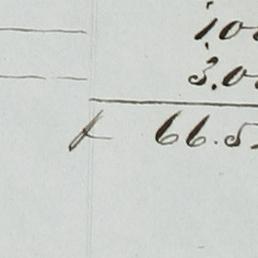 10
3.0
£ 66.5